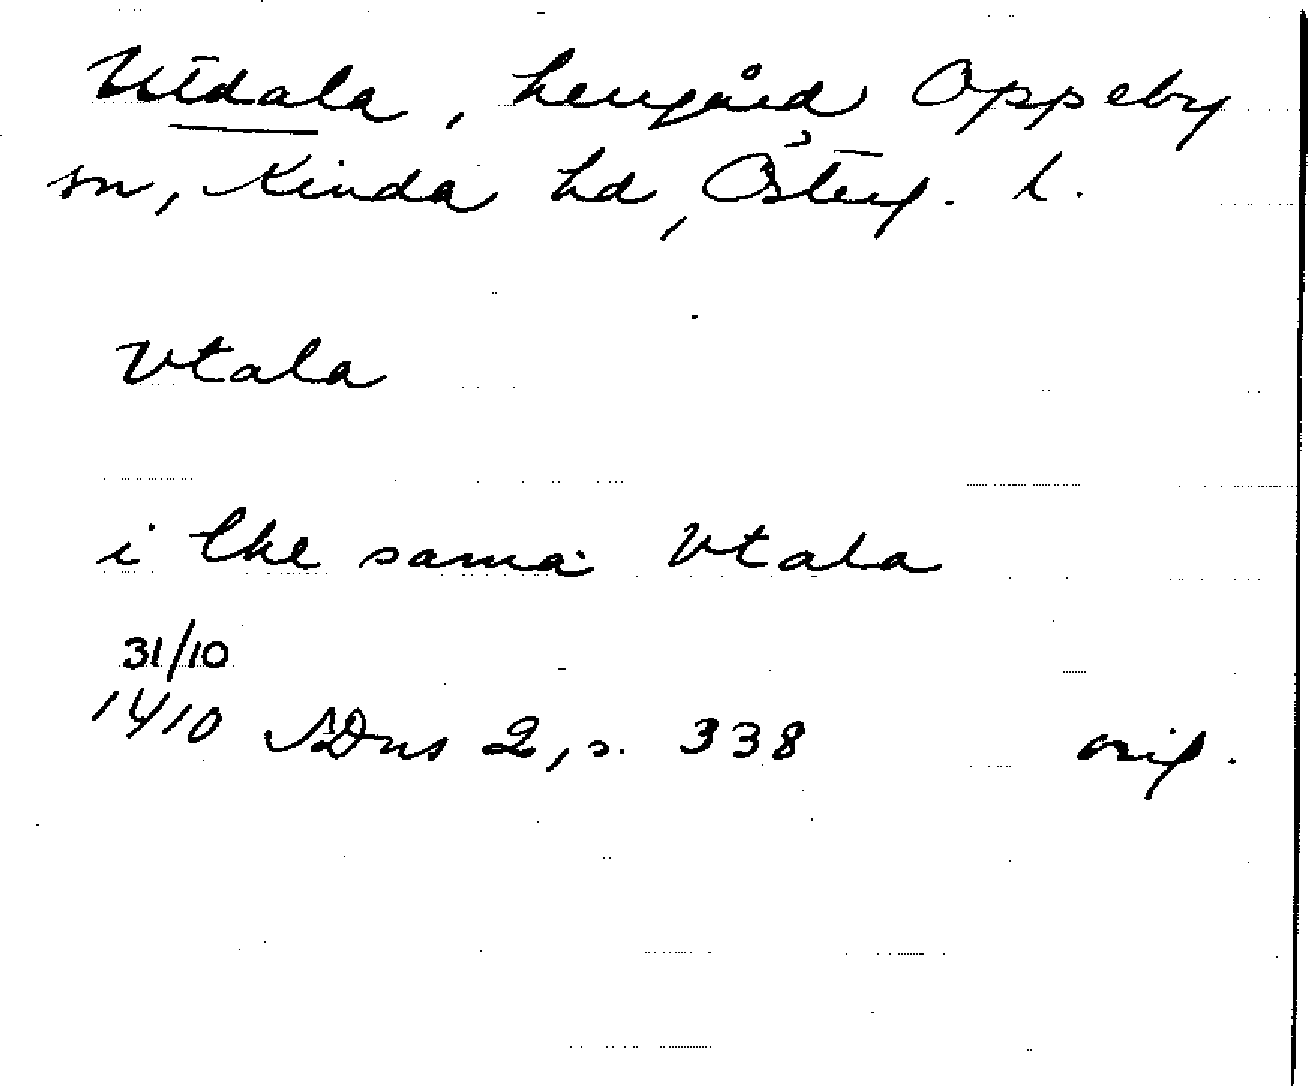 Utdala, herrgård Oppeby
sn, Kinda hd, Österg. l.
Vtala
i the sama Vtala
31/10
1410 SDns 2, s. 338 orig.